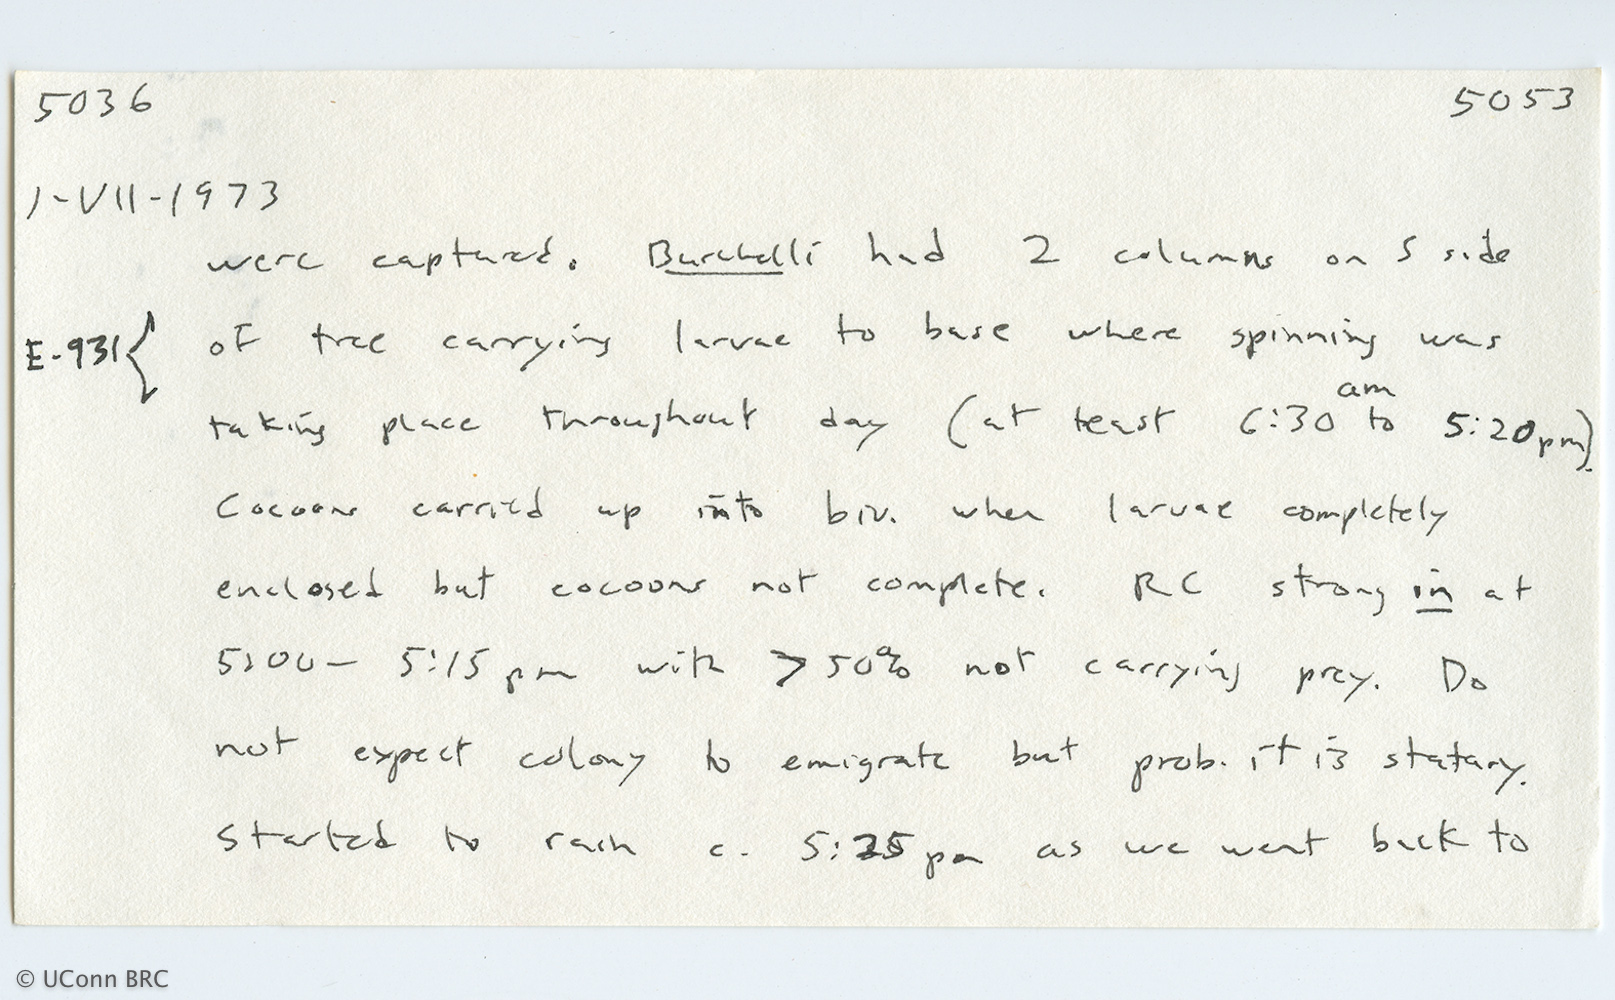 5036 5053
1-VII-1973
were captured. Burchelli had 2 columns on S side
E-931{ of tree carrying larvae to base where spinning was
taking place throughout day (at least 6:30 am to 5:20pm).
Cocoons carried up into biv. when larvae completely
enclosed but cocoons not complete. RC strong in at
5:00- 5:15 pm with >50% not carrying prey. Do
not expect colony to emigrate but prob. it is statary.
Started to rain c. 5:25 pm as we went back to
© UConn BRC